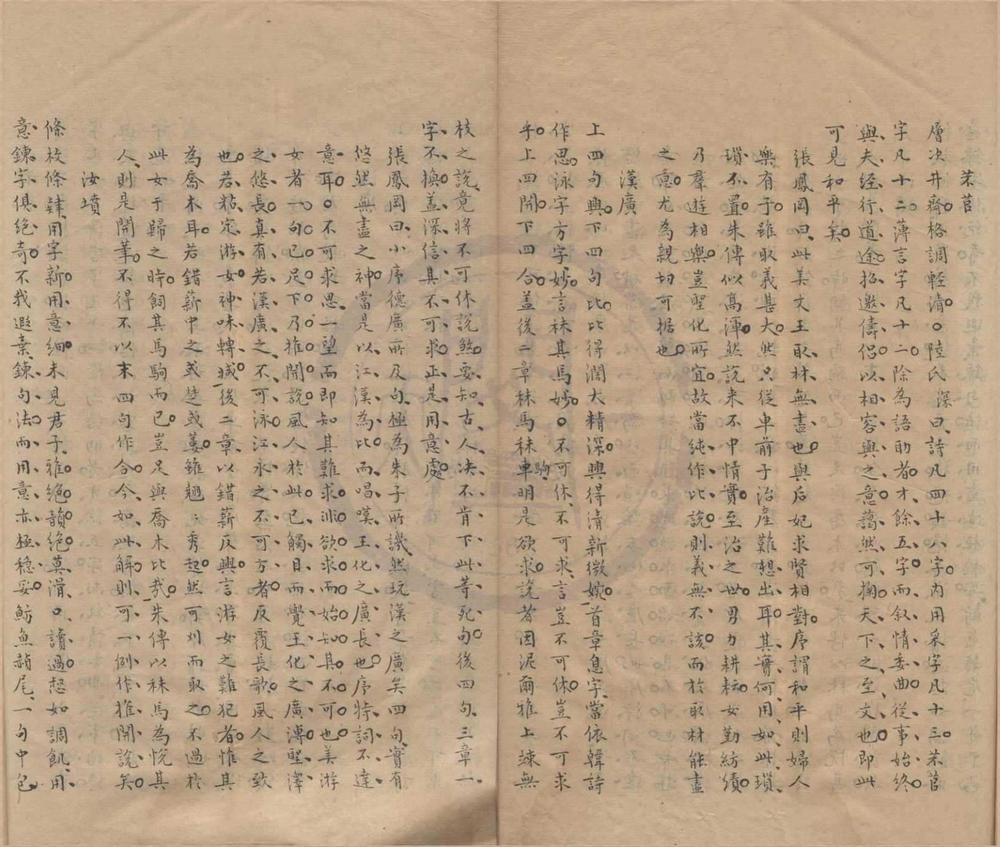 芣苢
層次井齊格調輕清○陸氏深曰詩凡四十八字內用采字凡十三芣苢
字凡十二薄言字凡十二除為語助者才餘五字而叙情委曲從事始終
與夫經行道途招邀儔侶以相容與之意藹然可掬天下之至文也即此
可見和平矣
張鳳岡曰此美文王取材無盡也與后妃求賢相對序謂和平則婦人
樂有子雖取義甚大然只從車前子治產難想出耳其實何用如此瑣
瑣不置朱傳似高渾然說來不中情實至治之世男力耕耘女勤紡績
乃羣遊相樂豈聖化所宜故當純作比說則義無不該而於取材能盡
之意尤為親切可据也
漢廣
上四句興下四句比比得濶大精深興得清新微婉首章息字當依韓詩
作思泳字方字妙言秣其馬駒妙○不可休不可求言豈不可休豈不可求
乎上四開下四合蓋後二章秣馬秣車明是欲求說者因泥爾雅上竦無
枝之說竟將不可休說煞要知古人决不肯下此等死句後四句三章一
字不換蓋深信其不可求正是用意處
張鳳岡曰小序德廣所及句極為朱子所譏然玩漢之廣矣四句實有
悠然無盡之神當是以江漢為比而唱嘆王化之廣長也序特詞不達
意耳○不可求思一望而即知其難求非欲求而始知其不可也美游
女者一句已足下乃推開說風人於此已觸目而覺王化之廣溥聖澤
之悠長真有若漢廣之不可泳江永之不可方者反覆長歌風人之致
也若粘定游女神味轉減後二章以錯薪反興言游女之難犯者惟其
為喬木耳若錯薪中之或楚或蔞雖翹翹秀起然可刈而取之不過於
此女于歸之時飼其馬駒而已豈足與喬木比哉朱傳以秣馬為悅其
人則是開筆不得不以末四句作合今如此解則可一例作推開說矣
汝墳
條枚條肄用字新用意細未見君子雅絕韻絕莫滑○讀過惄如調飢用
意鍊字俱絕奇不我遐棄鍊句法而用意亦極穩妥魴魚赬尾一句中包